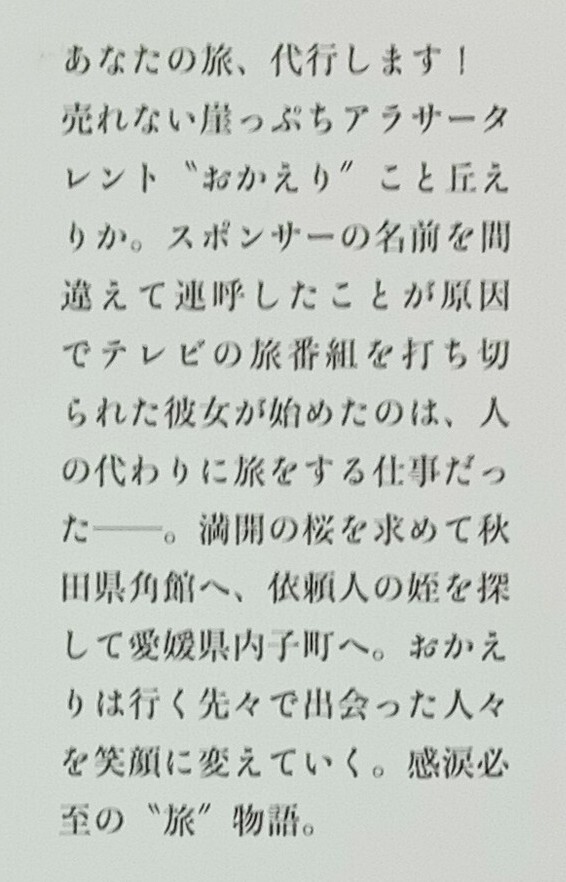 あなたの旅、代行します！
売れない崖っぷちアラサータ
レント〝おかえり〟こと丘え
りか。スポンサーの名前を間
違えて連呼したことが原因
でテレビの旅番組を打ち切
られた彼女が始めたのは、人
の代わりに旅をする仕事だっ
た――。満開の桜を求めて秋
田県角館へ、依頼人の姪を探
して愛媛県内子町へ。おかえ
りは行く先々で出会った人々
を笑顔に変えていく。感涙必
至の〝旅〟物語。